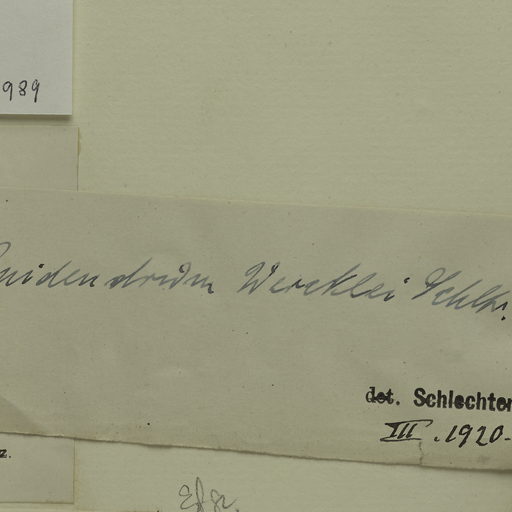 989
Epidendrum Wercklei Schltr.
det. Schlechter
III. 1920.
z.